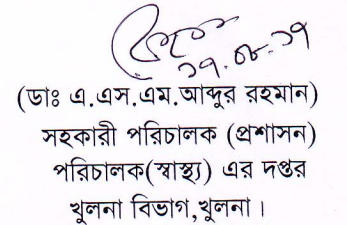 ১৭.০৮.১৭
(ডাঃ এ.এস.এম.আব্দুর রহমান)
সহকারী পরিচালক (প্রশাসন)
পরিচালক(স্বাস্থ্য) এর দপ্তর
খুলনা বিভাগ,খুলনা।